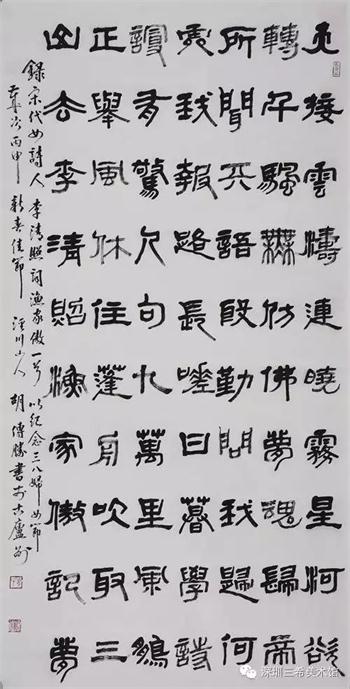 天接雲濤連曉霧星河欲
轉千颿舞仿佛夢魂歸帝
所聞天語殷勤問我歸何
處我報路長嗟日暮學詩
謾有驚人句九萬里風鵬
正舉風休住蓬舟吹取三
山去李清照漁家傲記夢
錄宋代女詩人李清照詞漁家傲一首以紀念三八婦女節
次丙申新春佳節涇川山人胡傳勝書於古廬州
深圳三希美术馆